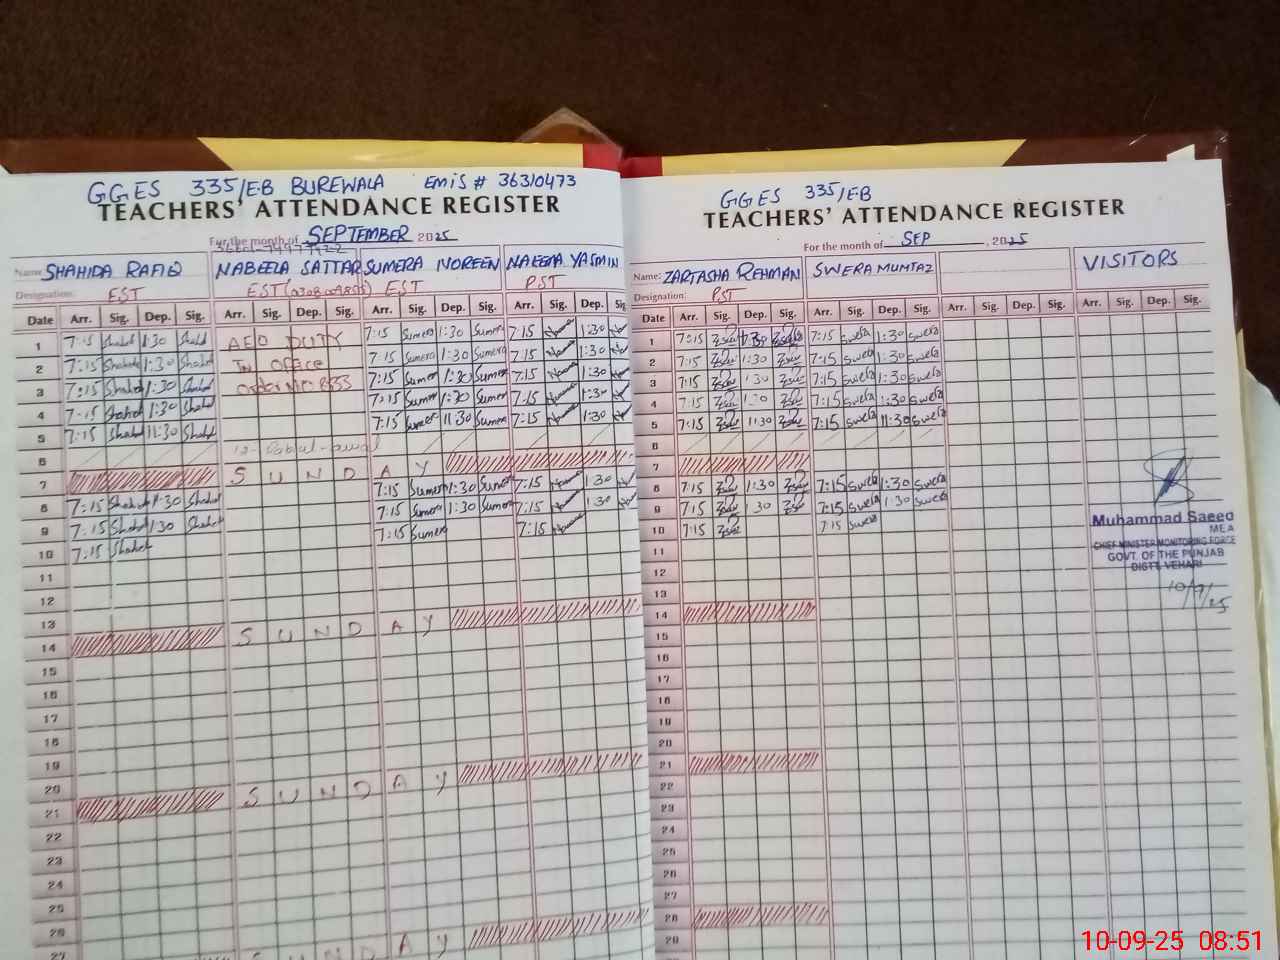 GGES 335/EB BUREWALA EMIS # 36310473
TEACHERS' ATTENDANCE REGISTER
For the month of SEPTEMBER 2025
Name: SHAHIDA RAFIQ NABEELA SATTAR SUMERA NOREEN NAEEMA YASMIN
Designation: EST EST EST PST
Date Arr. Sig. Dep. Sig. Arr. Sig. Dep. Sig. Arr. Sig. Dep. Sig. Arr. Sig. Dep. Sig
1 7:15 Shahid 1:30 Shahid AEO DUTY 7:15 Sumera 1:30 Sumera 7:15 1:30
2 7:15 Shahid 1:30 Shahid IN office 7:15 Sumera 1:30 Sumera 7:15 1:30
3 7:15 Shahid 1:30 Shahid Order NO 7:15 Sumera 1:30 Sumera 7:15 1:30
4 7:15 Shahid 1:30 Shahid 7:15 Sumera 1:30 Sumera 7:15 1:30
5 7:15 Shahid 11:30 Shahid 7:15 Sumera 11:30 Sumera 7:15 1:30
6 12-Rabi-ul-awal
7 SUNDAY
8 7:15 Shahid 1:30 Shahid 7:15 Sumera 1:30 Sumera 7:15 1:30
9 7:15 Shahid 1:30 Shahid 7:15 Sumera 1:30 Sumera 7:15 1:30
10 7:15 Shahid 7:15 Sumera 7:15
11
12
13
14 SUNDAY
15
16
17
18
19
20
21 SUNDAY
22
23
24
25
26
27 SUNDAY
GGES 335/EB
TEACHERS' ATTENDANCE REGISTER
For the month of SEP, 2025
Name: ZARTASHA REHMAN SWERA MUMTAZ VISITORS
Designation: PST
Date Arr. Sig. Dep. Sig. Arr. Sig. Dep. Sig. Arr. Sig. Dep. Sig. Arr. Sig. Dep. Sig.
1 7:15 1:30 7:15 Swera 1:30 Swera
2 7:15 1:30 7:15 Swera 1:30 Swera
3 7:15 1:30 7:15 Swera 1:30 Swera
4 7:15 1:30 7:15 Swera 1:30 Swera
5 7:15 11:30 7:15 Swera 11:30 Swera
6
7
8 7:15 1:30 7:15 Swera 1:30 Swera
9 7:15 1:30 7:15 Swera 1:30 Swera
10 7:15 7:15 Swera
11
12
14
15
16
17
18
19
20
21
22
23
24
25
26
27
28
29
Muhammad Saeed
MEA
CHIEF MINISTER MONITORING FORCE
GOVT. OF THE PUNJAB
DISTT. VEHARI
10/9/25
10-09-25 08:51